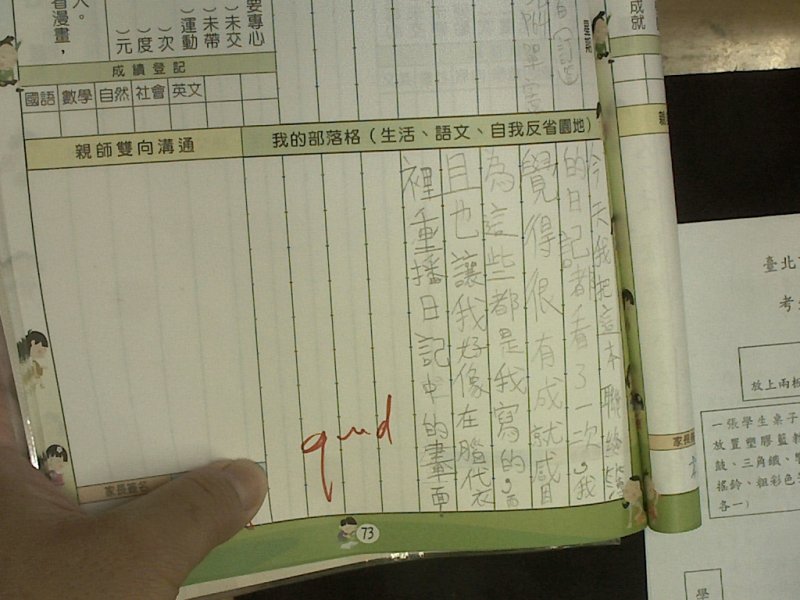 要專心
）未交
）未帶
）運動
）次
）度
）元
人。
看漫畫，
成就
成績登記
國語 數學 自然 社會 英文
親師雙向溝通
我的部落格（生活、語文、自我反省園地）
今天我把這本聯絡簿
的日記都看了一次，我
覺得很有成就感
為這些都是我寫的，而
且也讓我好像在腦代衣
裡重播日記中的畫面
good
家長簽名
73
臺北
考
放上兩板
一張學生桌子
放置塑膠籃
鼓、三角鐵、
搖鈴、粗彩色
各一）
學